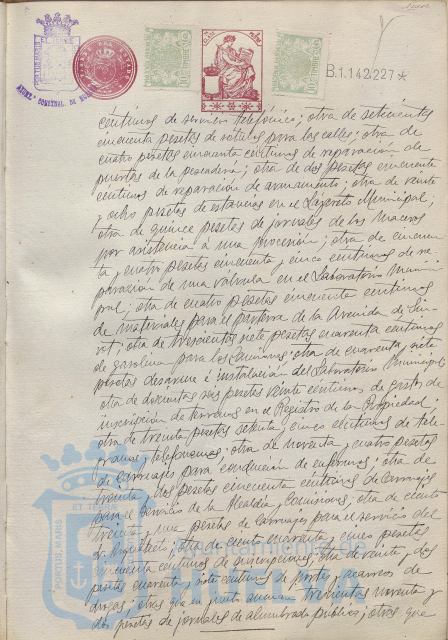 B.1.142.227*
céntimos de servicio telefónico; otra de setecientas
cincuenta pesetas de rótulos para las calles; otra de
cuatro pesetas cincuenta céntimos de reparación de
puertas de la pescadería; otra de dos pesetas cincuenta
céntimos de reparación de armamento; otra de veinte
y ocho pesetas de estancias en el Depósito Municipal;
otra de quince pesetas de jornales de los Maceros
por asistencia a una procesión; otra de cincuen
ta y cuatro pesetas cincuenta y cinco céntimos de re
paración de una válvula en el Laboratorio Munici
pal; otra de cuatro pesetas cincuenta céntimos
de materiales para el parterre de la Avenida de
otra de trescientas siete pesetas cuarenta céntimos
de gasolina para los Camiones; otra de cuarenta y siete
pesetas desarme é instalación del Laboratorio Municipal
otra de doscientas seis pesetas veinte céntimos de gastos de
inscripción de terrenos en el Registro de la Propiedad
otra de treinta pesetas setenta y cinco céntimos de tele
gramas y telefonemas; otra de noventa y cuatro pesetas
de carruajes para conducción de enfermos; otra de
treinta y dos pesetas cincuenta céntimos de carruajes
para el servicio de la Alcaldía y Comisiones; otra de ciento
treinta y una pesetas de carruajes para el servicio del
Arquitecto; otra de ciento cuarenta y cinco pesetas
cincuenta céntimos de suscripciones; otra de veinte y dos
pesetas cuarenta y siete céntimos de portes y acarreos de
drogas; otras que en junto suman trescientas noventa y
dos pesetas de jornales de alumbrado público; otras que
PORTUS MARIS
ET TERRÆ
Ayuntamiento de
HUELVA